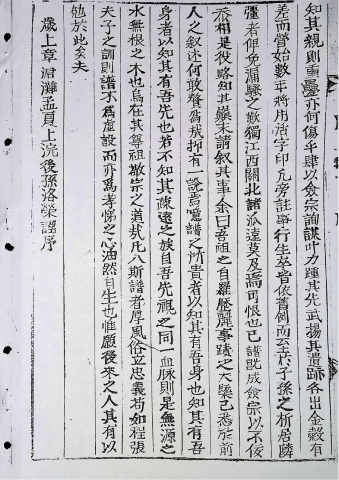 知其親則重疊亦何傷乎肆以僉宗詢謀叶力踵其先武揚其遺跡各出金穀有
差而營始數年將用活字印凡旁註事行生卒皆依舊例而至於子孫之析居隣
疆者俾免漏騷之歎獨江西關北諸派遠莫及焉可恨也已譜旣成僉宗以不佞
忝相是役略知其顚末請敘其事余曰吾祖之自羅歷麗事蹟之大槩已悉於前
人之敘述何敢贅焉哉抑有一說焉噫譜之所貴者以知其有吾身也知其有吾
身者以知其有吾先也若不知其疎遠之族自吾先視之同一血脉則是無源之
水無根之木也烏在其尊祖敬宗之道哉凡八斯譜者厚風俗立忠義苟如程張
夫子之訓則譜不爲虛設而亦爲孝悌之心油然自生也惟願後來之人其有以
勉於此矣夫
歲上章涒灘孟夏上浣後孫洛榮謹序